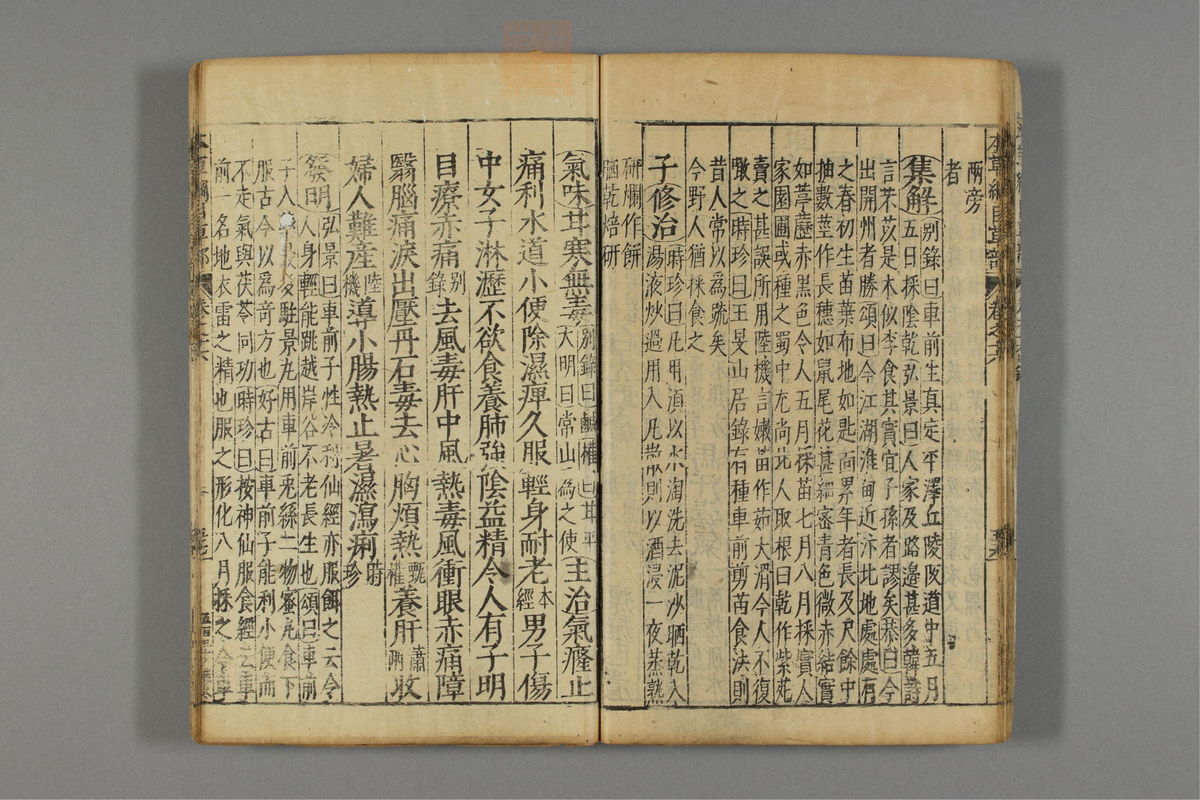 兩旁
者
集解別錄曰車前生真定平澤丘陵阪道中五月
五日採陰乾弘景曰人家及路邊甚多韓詩
言芣苡是木似李食其實宜子孫者謬矣恭曰今
出開州者勝頌曰今江湖淮甸近汴北地處處有
之春初生苗葉布地如匙面累年者長及尺餘中
抽數莖作長穗如鼠尾花甚細密青色微赤結實
如葶藶赤黑色今人五月採苗七月八月採實人
家園圃或種之蜀中尤尚北人取根日乾作紫菀
賣之甚誤所用陸機言嫩苗作茹大滑今人不復
噉之時珍曰王旻山居錄有種車前剪苗食法則
昔人常以為蔬矣
今野人猶採食之
子修治時珍曰凡用湏以水淘洗去泥沙晒乾入
湯液炒過用入凡散則以酒浸一夜蒸熟
研爛作餅
晒乾焙研
氣味甘寒無毒別錄曰鹹權曰甘平
大明曰常山為之使
主治氣癃止
痛利水道小便除濕痺久服輕身耐老本經男子傷
中女子淋瀝不欲食養肺強陰益精令人有子明
目療赤痛別錄去風毒肝中風熱毒風衝眼赤痛障
翳腦痛淚出壓丹石毒去心胸煩熱甄權養肝蕭炳收
婦人難產陸機導小腸熱止暑濕瀉痢時珍
發明弘景曰車前子性冷利仙經亦服餌之云令
人身輕能跳越岸谷不老長生也頌曰車前
子入藥最多駐景丸用車前兔絲二物蜜丸食下
服古今以為奇方也好古曰車前子能利小便而
不走氣與茯苓同功時珍曰按神仙服食經云車
前一名地衣雷之精也服之形化八月採之今車